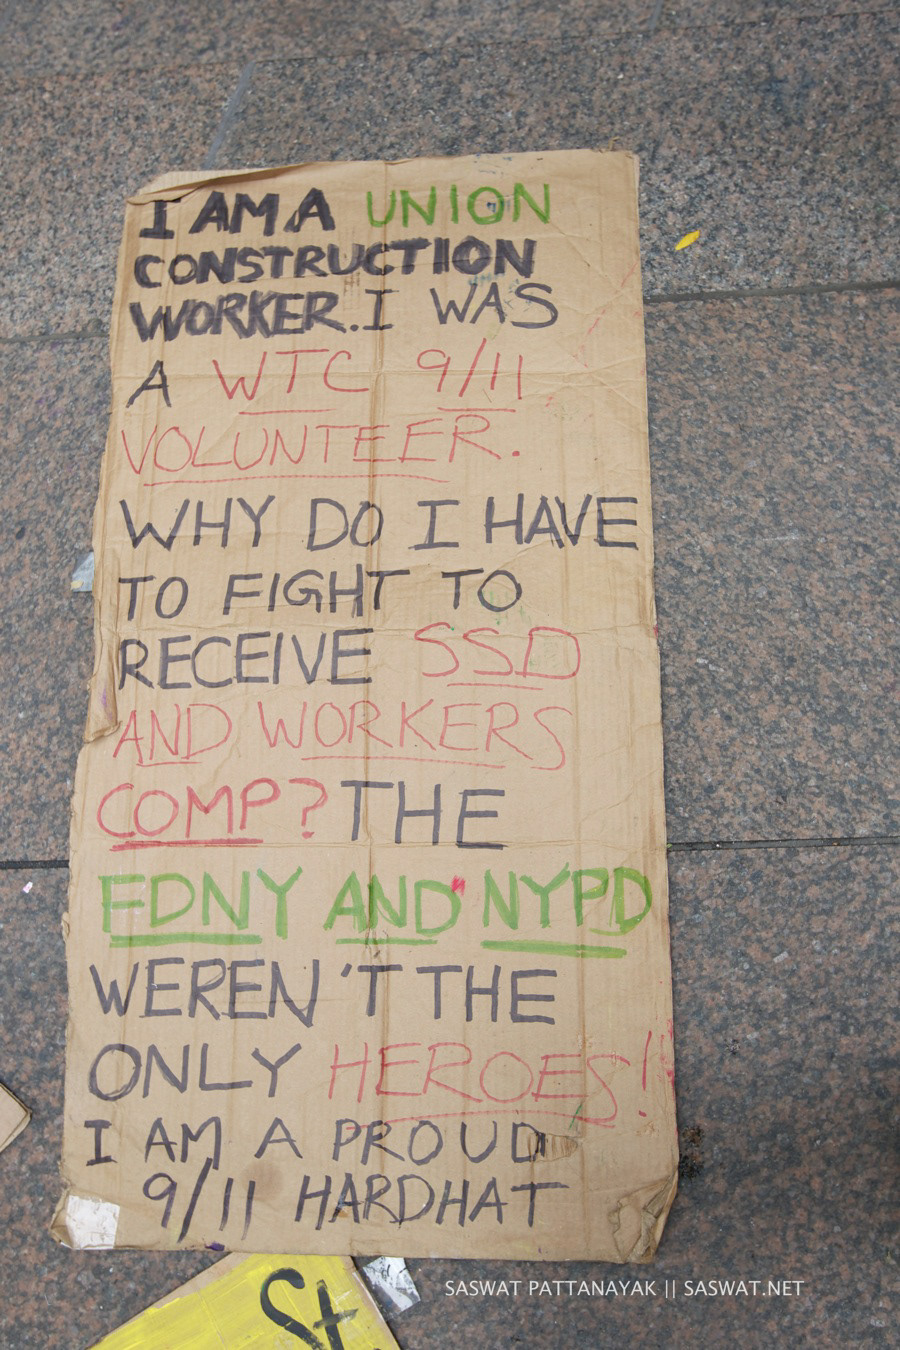 I AM A UNION
CONSTRUCTION
WORKER. I WAS
A WTC 9/11
VOLUNTEER.
WHY DO I HAVE
TO FIGHT TO
RECEIVE SSD
AND WORKERS
COMP? THE
FDNY AND NYPD
WEREN'T THE
ONLY HEROES!
I AM A PROUD
9/11 HARDHAT
St
SASWAT PATTANAYAK || SASWAT.NET